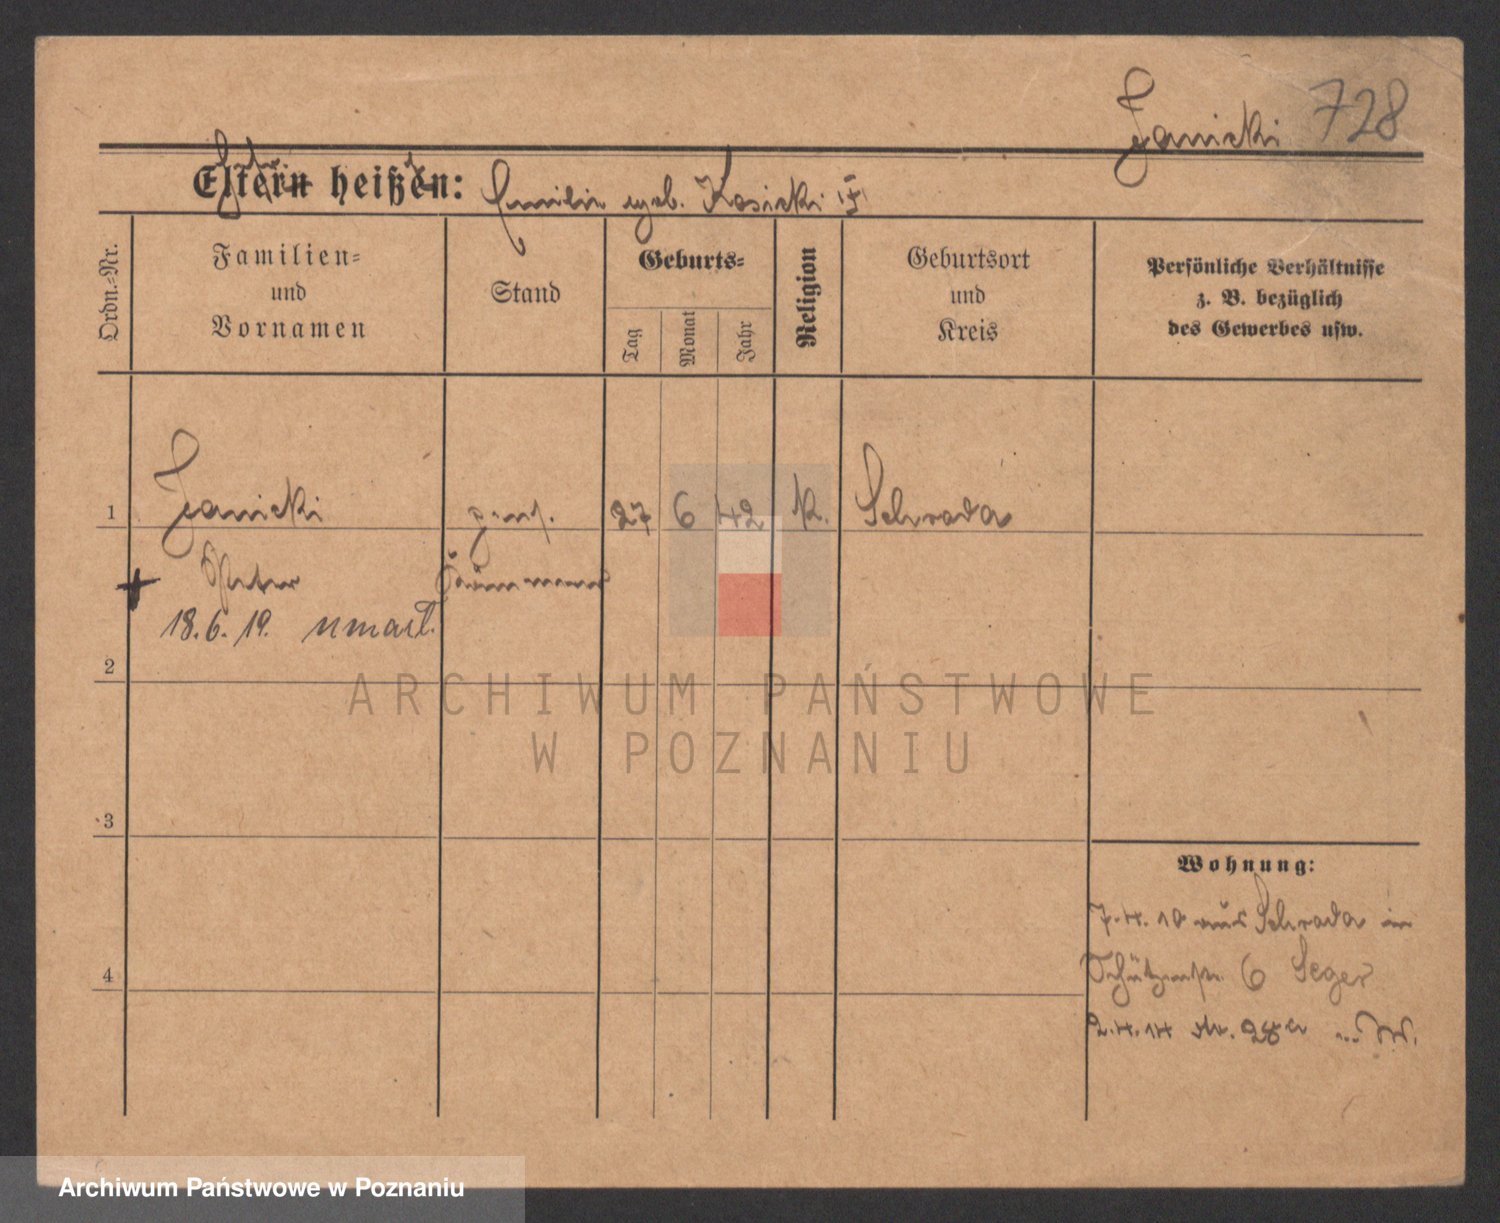 Janicki 728
Eltern heißen: Emilie geb. Kosicki
Ordn.-Nr.
Familien-
und
Vornamen
Stand
Geburts-
Tag
Monat
Jahr
Religion
Geburtsort
und
Kreis
Persönliche Verhältnisse
z. B. bezüglich
des Gewerbes usw.
1 Janicki 27 6 42 K. Schroda
Peter
18.6.19. umarł.
2
ARCHIWUM PAŃSTWOWE
W POZNANIU
3
Wohnung:
7.4.10 aus Schroda in
Schützenstr. 6 Seger
4
2.4.14 do. 28a
Archiwum Państwowe w Poznaniu